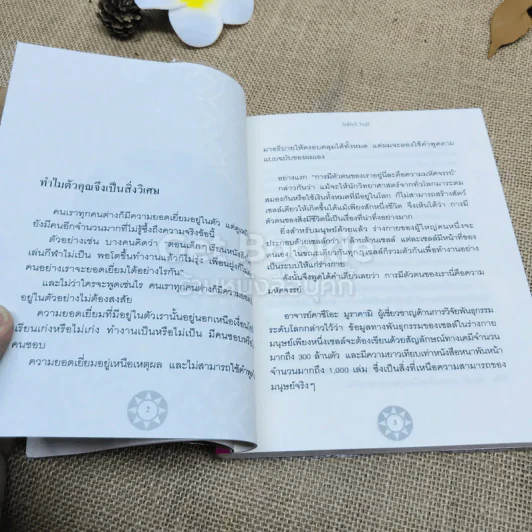 ทำไมตัวคุณจึงเป็นสิ่งวิเศษ
คนเราทุกคนต่างก็มีความยอดเยี่ยมอยู่ในตัว แต่
ยังมีคนอีกจำนวนมากที่ไม่รู้ซึ้งถึงความจริงข้อนี้
ตัวอย่างเช่น บางคนคิดว่า ตอนเด็กก็เรียน
เล่นกีฬาไม่เป็น พอโตขึ้นทำงานก็ไม่รุ่ง เพื่อนฝูง
คนอย่างเราจะยอดเยี่ยมได้อย่างไรกัน
และไม่ว่าใครจะพูดเช่นไร คนเราทุกคนต่างก็มีความ
อยู่ในตัวอย่างไม่ต้องสงสัย
ความยอดเยี่ยมที่มีอยู่ในตัวเรานั้นอยู่นอกเหนือ
เรียนเก่งหรือไม่เก่ง ทำงานเป็นหรือไม่เป็น มีคนชอบ
คนชอบ
ความยอดเยี่ยมอยู่เหนือเหตุผล และไม่สามารถใช้คำพูด
2
มาอธิบายให้ครอบคลุมได้ทั้งหมด แต่ผมจะลองใช้คำพูดตาม
แบบฉบับของผมเอง
อย่างแรก "การมีตัวตนของเราอยู่นี่ละคือความมหัศจรรย์"
กล่าวกันว่า แม้จะให้นักวิทยาศาสตร์จากทั่วโลกมาระดม
สมองกันหรือใช้เงินทั้งหมดที่มีอยู่ในโลก ก็ไม่สามารถสร้างสัตว์
เซลล์เดียวให้เกิดขึ้นได้แม้เพียงสักหนึ่งชีวิต จึงเห็นได้ว่า การมี
ตัวตนของสิ่งมีชีวิตนี้เป็นเรื่องที่น่าทึ่งอย่างมาก
ยิ่งสำหรับมนุษย์ด้วยแล้ว ร่างกายของผู้ใหญ่คนหนึ่งจะ
ประกอบด้วยเซลล์กว่า ล้านล้านเซลล์ แต่ละเซลล์มีหน้าที่ของ
ตนเอง ในขณะเดียวกันทุกเซลล์ก็รวมตัวกันเพื่อทำงานอย่าง
เป็นระบบให้แก่ร่างกาย
ดังนั้นจึงพูดได้คำเดียวเลยว่า การมีตัวตนของเรานี่คือความ
มหัศจรรย์
อาจารย์คาซึโอะ มูราคามิ ผู้เชี่ยวชาญด้านการวิจัยพันธุกรรม
ระดับโลกกล่าวไว้ว่า ข้อมูลทางพันธุกรรมของเซลล์ในร่างกาย
มนุษย์เพียงหนึ่งเซลล์จะต้องเขียนด้วยสัญลักษณ์ทางเคมีจำนวน
มากถึง 300 ล้านตัว และมีความยาวเทียบเท่าหนังสือหนาพันหน้า
จำนวนมากถึง 1,000 เล่ม ซึ่งเป็นสิ่งที่เหนือความสามารถของ
มนุษย์จริงๆ
3